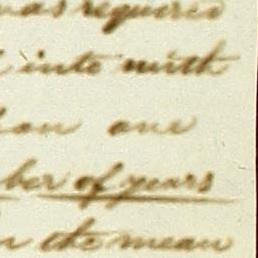 was required
into with
an one
ber of years
the mean